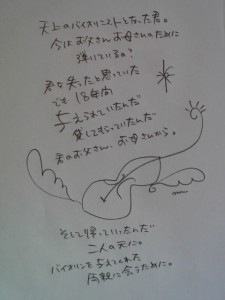 天上のバイオリニストとなった君。
今はお父さんお母さんのために
弾いているの?
君を失ったと思っていた
でも 18年間
与えられていたんだ
貸してもらっていたんだ
君のお父さん、お母さんから。
そして帰っていったんだ
二人の元に。
バイオリンを与えてくれた
両親に会うために。